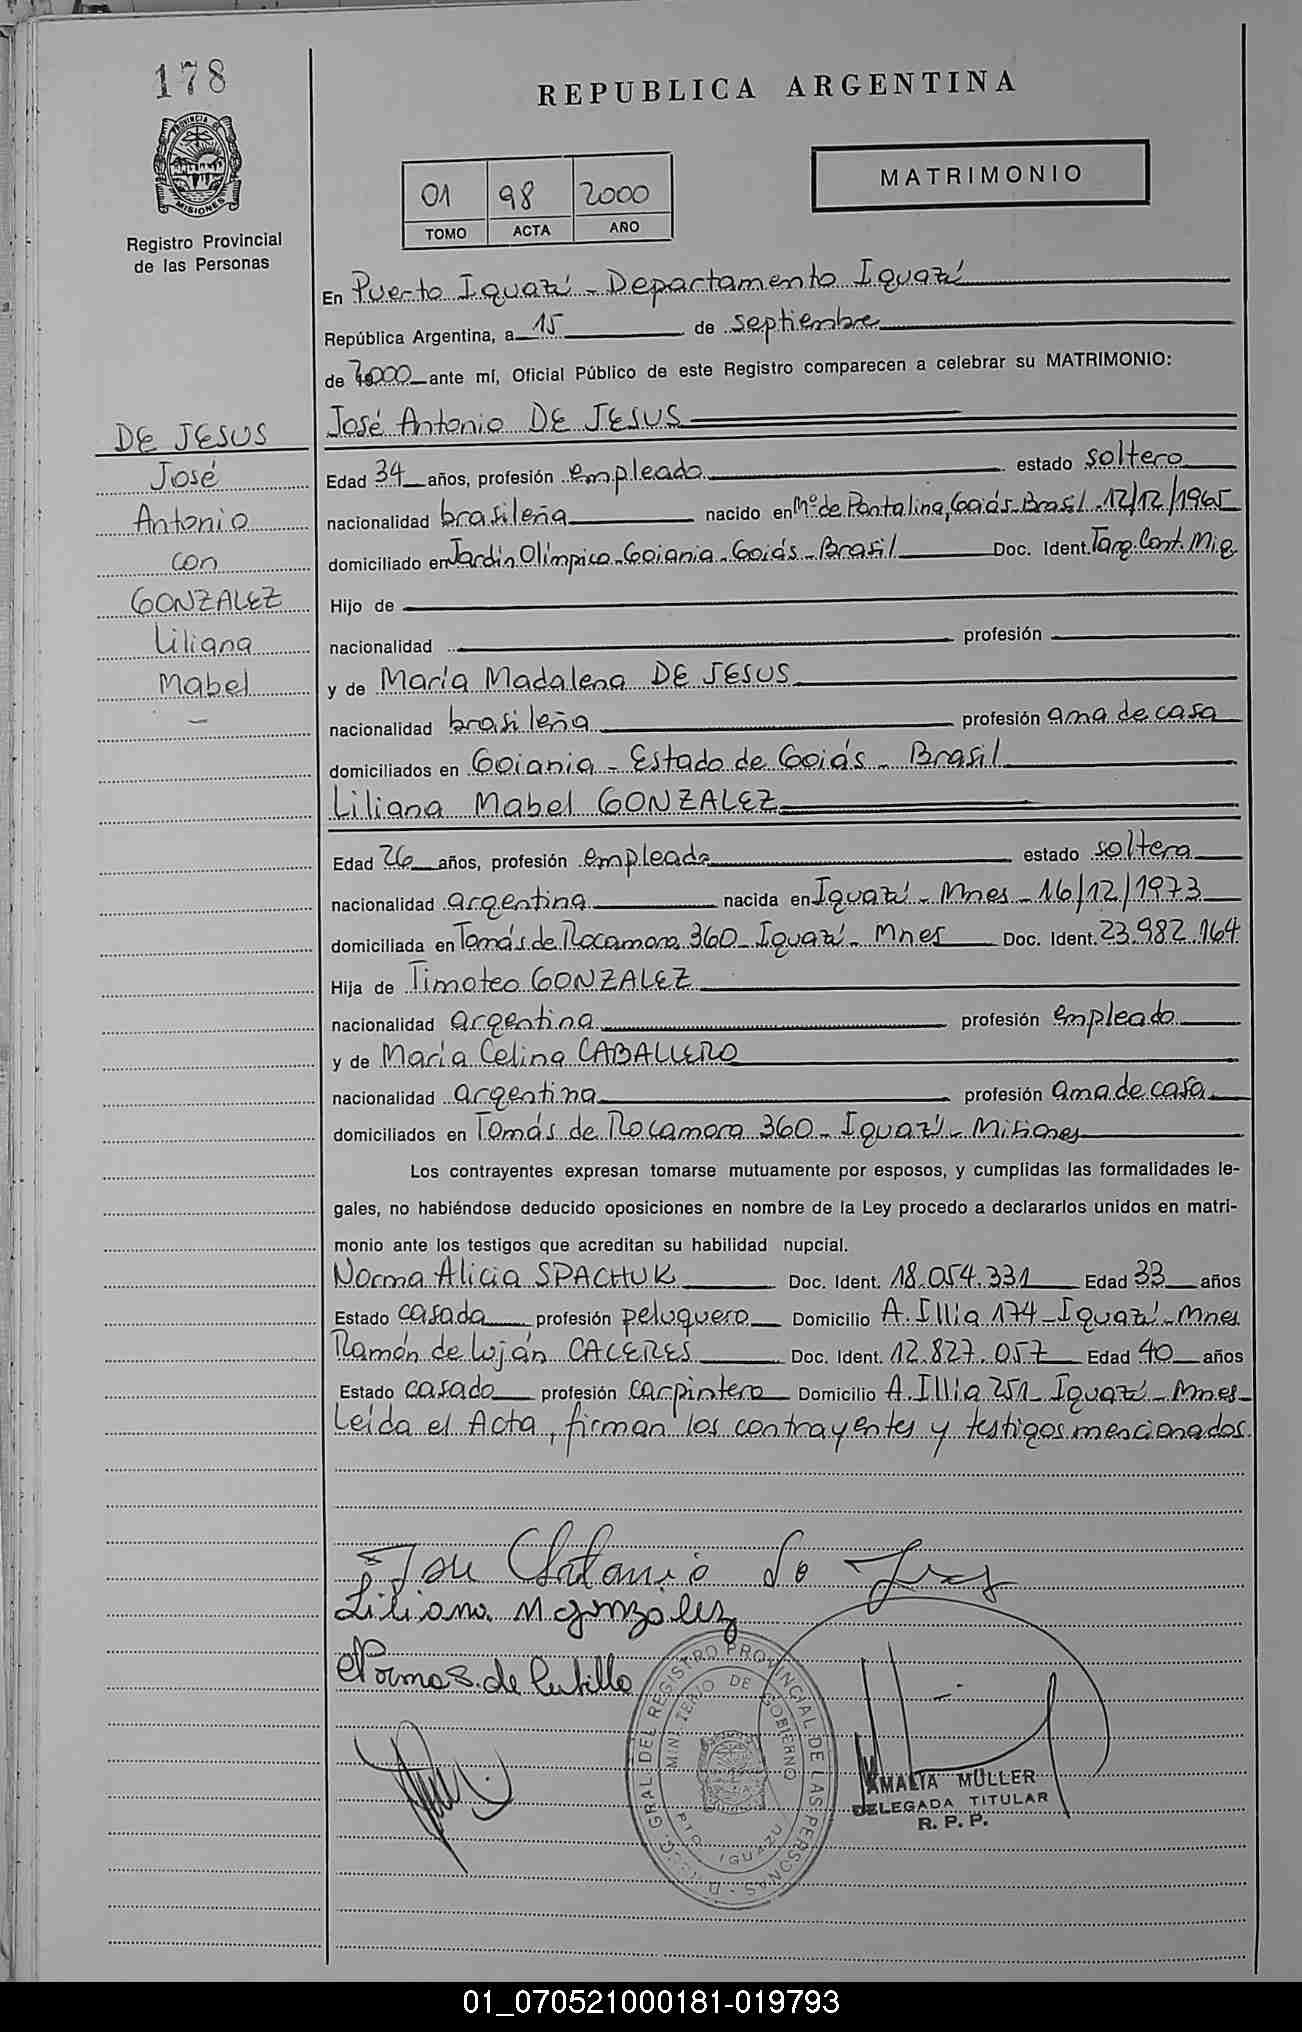 178
REPUBLICA ARGENTINA
PROVINCIA DE
MISIONES
Registro Provincial
de las Personas
MATRIMONIO
01 98 2000
TOMO ACTA AÑO
En Puerto Iguazú - Departamento Iguazú
República Argentina, a 15 de septiembre
de 2000 ante mí, Oficial Público de este Registro comparecen a celebrar su MATRIMONIO:
DE JESUS
José
Antonio
con
GONZALEZ
Liliana
Mabel
José Antonio DE JESUS
Edad 34 años, profesión empleado estado soltero
nacionalidad brasileña nacido en Mº de Pontalina, Goiás-Brasil-12/12/1965
domiciliado en Jardín Olímpico-Goiania-Goiás-Brasil Doc. Ident. Tarq. Cont. Mig.
Hijo de
nacionalidad profesión
y de María Madalena DE JESUS
nacionalidad brasileña profesión ama de casa
domiciliados en Goiania - Estado de Goiás - Brasil
Liliana Mabel GONZALEZ
Edad 26 años, profesión empleada estado soltera
nacionalidad argentina nacida en Iguazú - Mnes - 16/12/1973
domiciliada en Tomás de Rocamora 360 - Iguazú - Mnes Doc. Ident. 23.982.164
Hija de Timoteo GONZALEZ
nacionalidad argentina profesión empleado
y de María Celina CABALLERO
nacionalidad argentina profesión ama de casa
domiciliados en Tomás de Rocamora 360 - Iguazú - Misiones
Los contrayentes expresan tomarse mutuamente por esposos, y cumplidas las formalidades le-
gales, no habiéndose deducido oposiciones en nombre de la Ley procedo a declararlos unidos en matri-
monio ante los testigos que acreditan su habilidad nupcial.
Norma Alicia SPACHUK Doc. Ident. 18.054.331 Edad 33 años
Estado casada profesión peluquero Domicilio A. Illia 174 - Iguazú - Mnes
Ramón de Luján CACERES Doc. Ident. 12.827.057 Edad 40 años
Estado casado profesión carpintero Domicilio A. Illia 251 - Iguazú - Mnes -
Leída el Acta, firman los contrayentes y testigos mencionados.
Jose Antonio de Jesus
Liliana M. Gonzalez
Norma S. de
GRAL DEL REGISTRO PROVINCIAL DE LAS PERSONAS
MINISTERIO DE GOBIERNO
PTO IGUAZU
AMALIA MULLER
DELEGADA TITULAR
R. P. P.
01_070521000181-019793